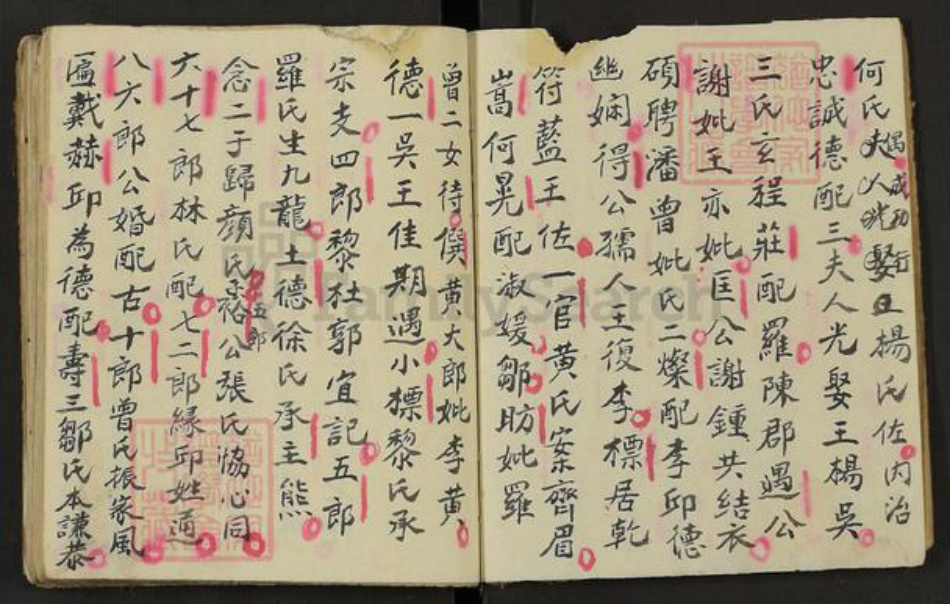 何氏夫人娶旦楊氏佐內治
偶成功行
忠誠德配三夫人光娶王楊吳
三氏玄程莊配羅陳郡遇公
謝妣王亦妣匡公謝鍾共結衣
碩聘潘曾妣氏二燦配李邱德
繼嫻得公孺人王復李標居乾
符藍王佐一官黃氏案齊眉
嵩何晃配淑媛鄒昉妣羅
曾二女待僎黃大郎妣李黃
德一吳王佳期遇小標黎氏承
宗支四郎黎杜郭宜記五郎
羅氏生九龍土德徐氏承主熊
念二于歸顏氏裕公張氏協心同
五郎
六十七郎林氏配七二郎緣邱姓適
八六郎公婚配古十郎曾氏振家風
匾戴赫邱為德配壽三鄒氏本謙恭
FamilySearch